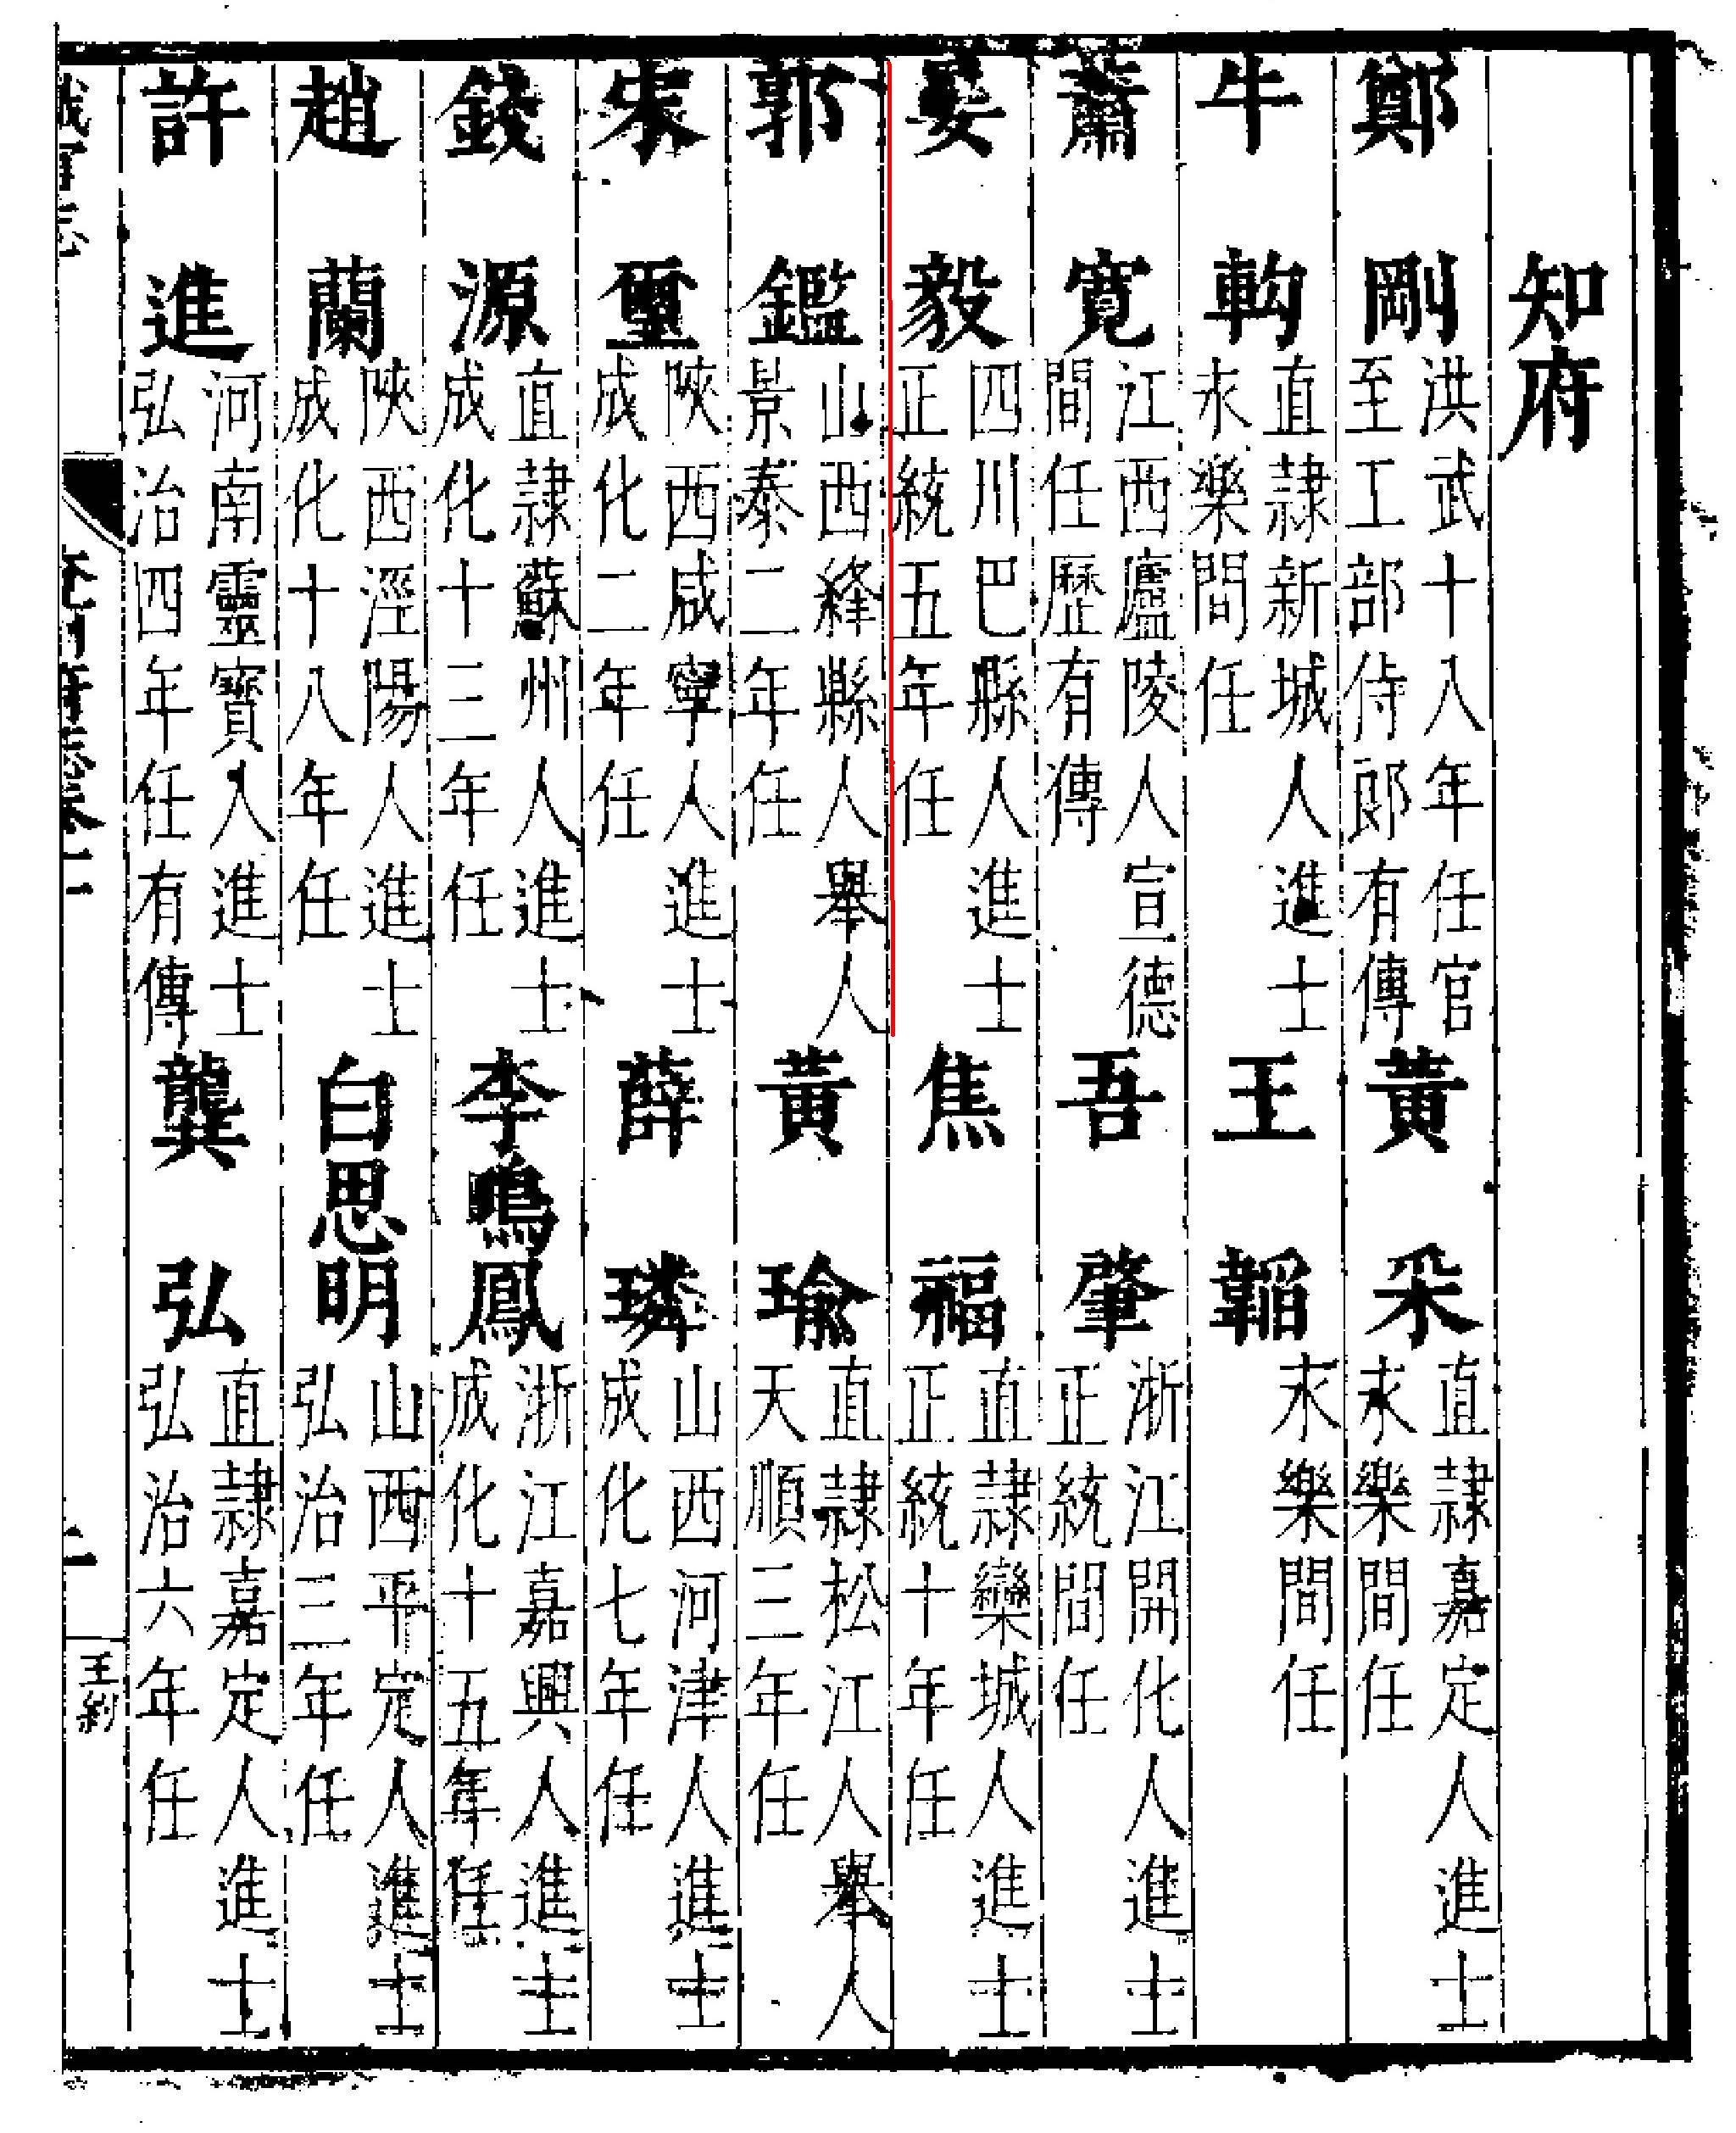 知府
鄭剛 洪武十八年任官至工部侍郎有傳 黃采 直隸嘉定人進士永樂間任
牛 直隸新城人進士永樂間任 王韜 永樂間任
蕭寬 江西廬陵人宣德間任歷有傳 吾肇 浙江開化人進士正統間任
晏毅 四川巴縣人進士正統五年任 焦福 直隸欒城人進士正統十年任
郭鑑 山西絳縣人舉人景泰二年任 黃瑜 直隸松江人舉人天順三年任
宋 陝西咸寧人進士成化二年任 薛璘 山西河津人進士成化七年任
錢源 直隸蘇州人進士成化十三年任 李鳴鳳 浙江嘉興人進士成化十五年任
趙蘭 陝西涇陽人進士成化十八年任 白思明 山西平定人進士弘治三年任
許進 河南靈寶人進士弘治四年任有傳 龔弘 直隸嘉定人進士弘治六年任